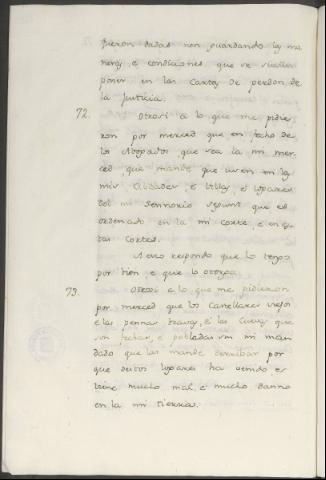 fueron dadas non guardando las ma
neras, e condiciones que se suelen
poner en las Cartas de perdon de
la Justicia.
72. Otrosi a lo que me pidie
ron por merced que en fecho de
los Abogados, que sea la mi mer
ced, que mande que usen en las
mis Cibdades, e Villas, e logares
del mi Sennorio segunt que es
ordenado en la mi corte, e en es
tas Cortes.
A esto respondo que lo tengo
por bien e que lo otorgo.
73. Otrosi a lo que me pidieron
por merced que los Castellares viejos
e las pennas bravas, e las Cuevas que
son fechas, e pobladas sin mi man
dado que las mande derribar por
que destos logares ha venido, e
viene mucho mal e mucho danno
en la mi tierra.